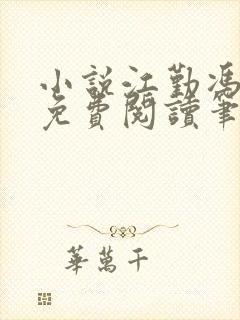 小說江勤馮
免費閱讀筆
華萬千